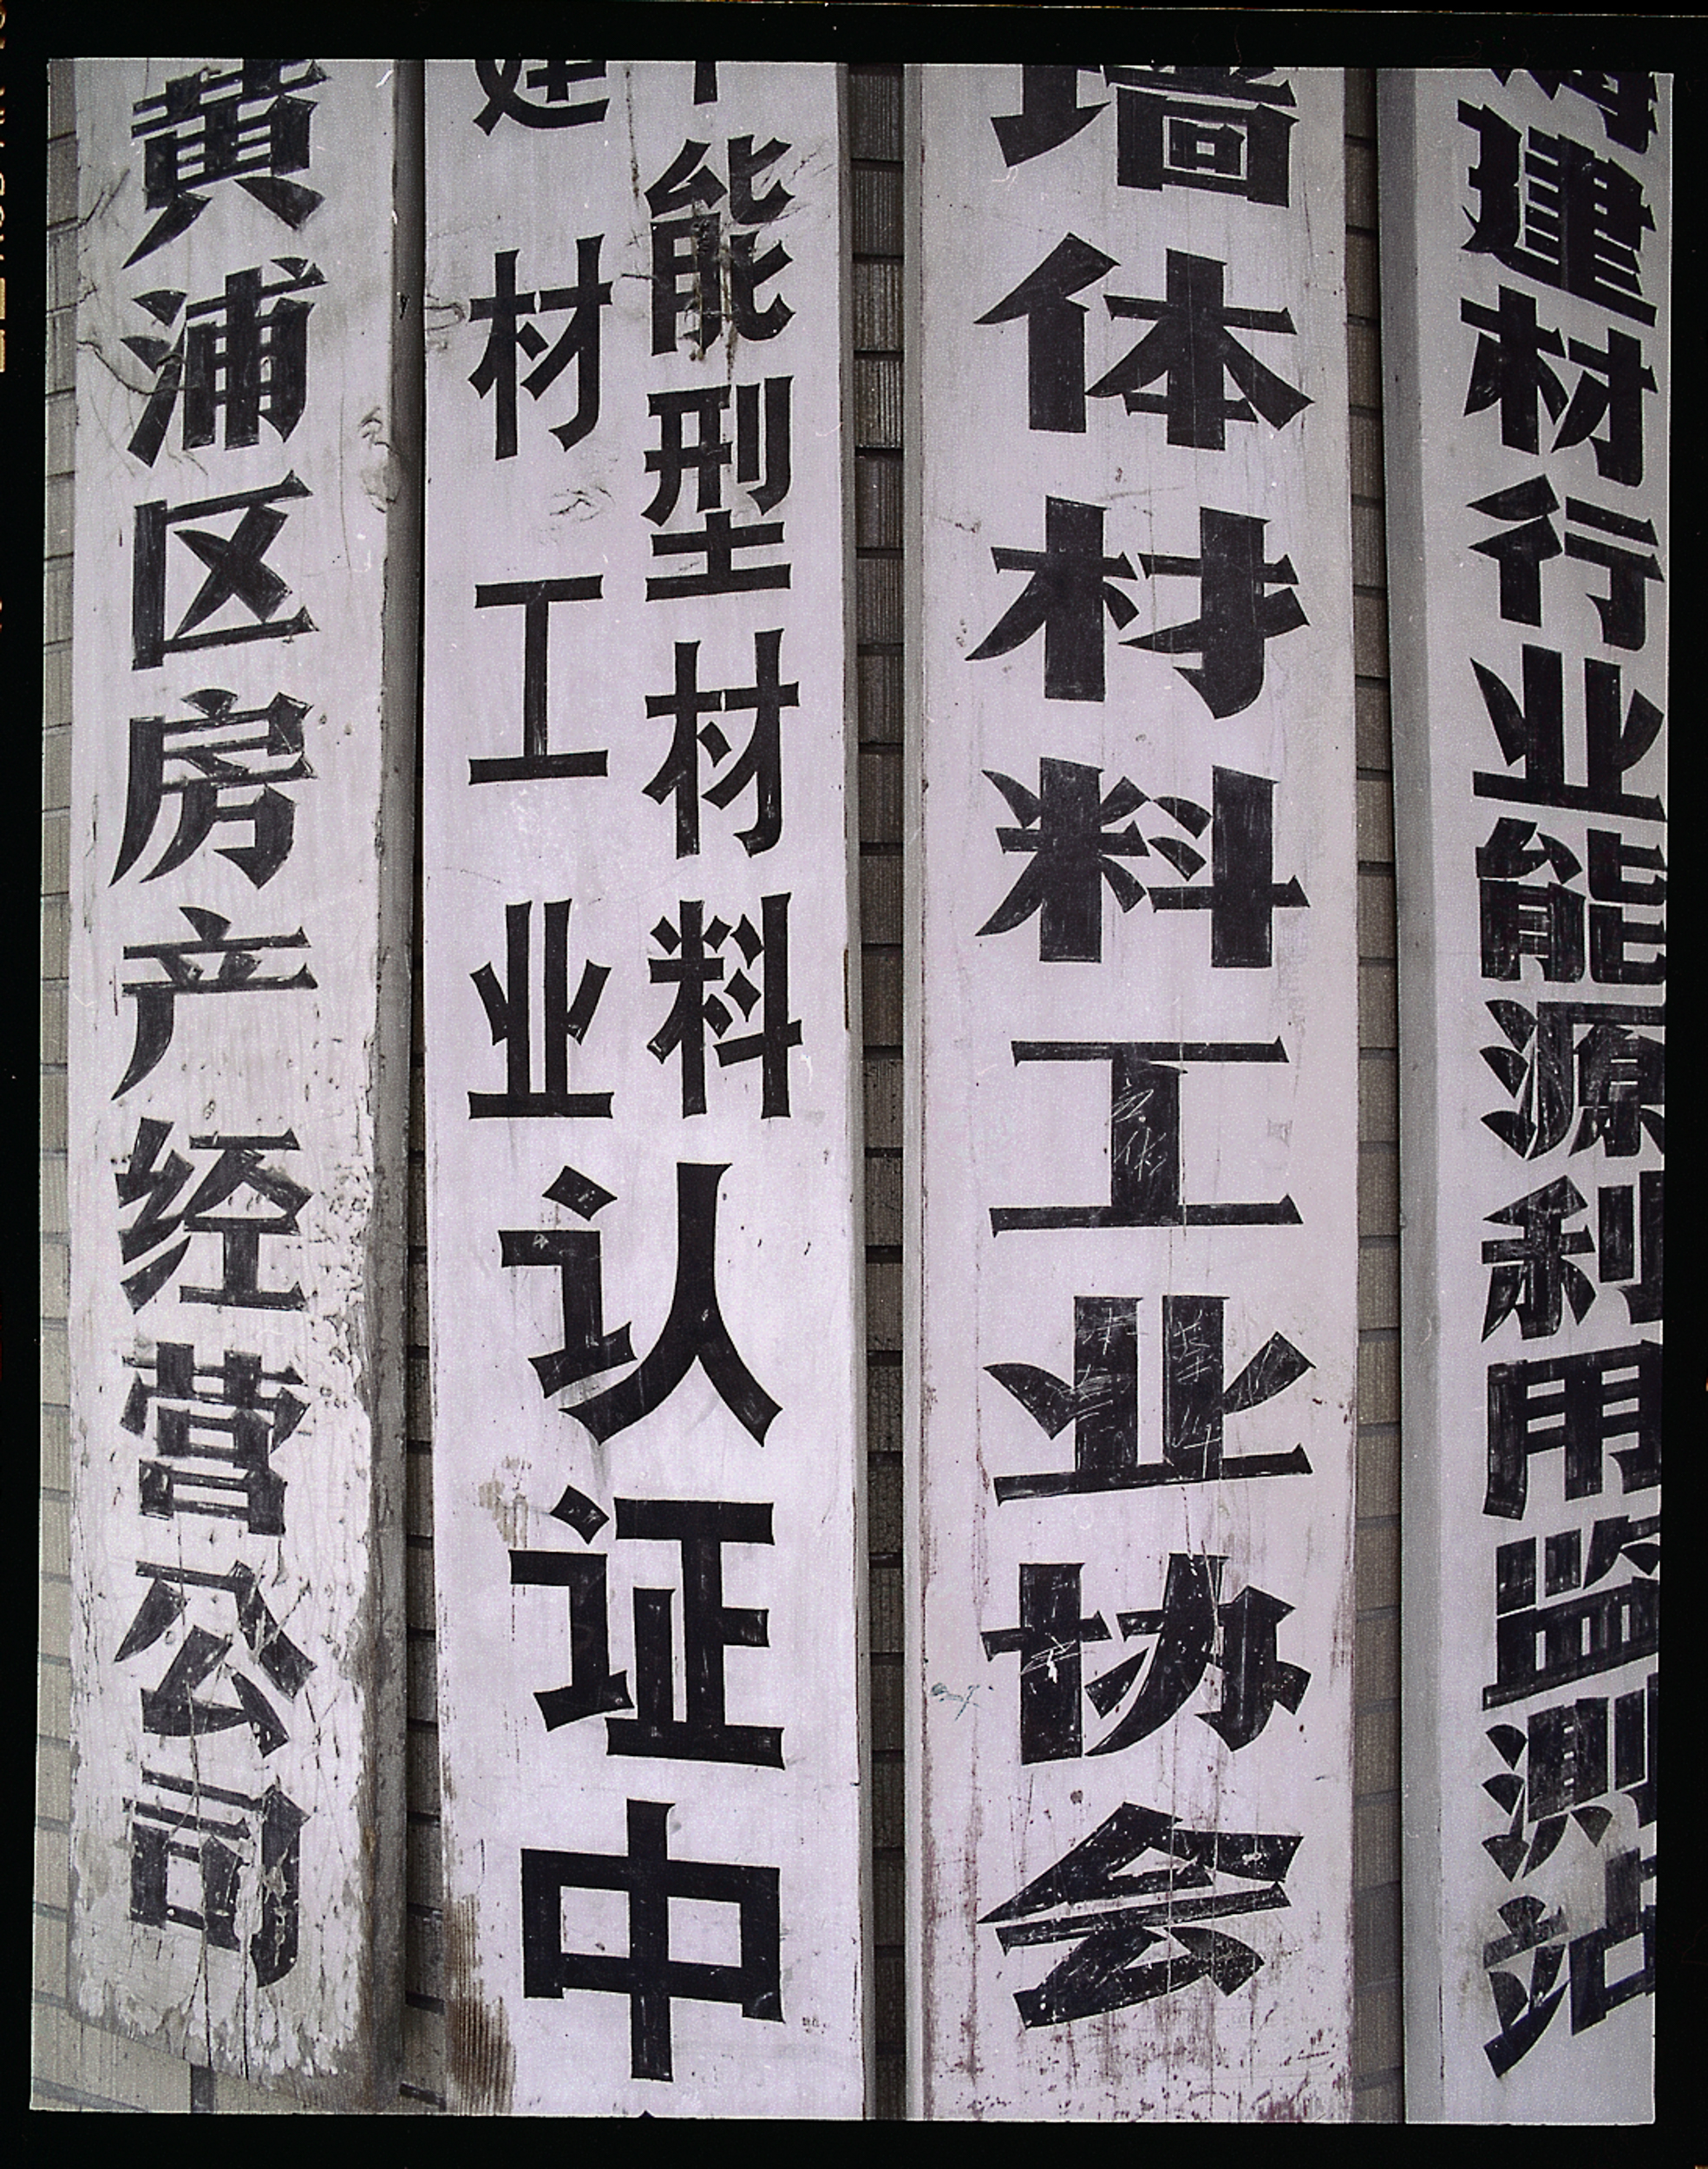 黄浦区房产经营公司
建材工业
能型材料
认证中
墙体材料工业协会
海建材行业能源利用监测站